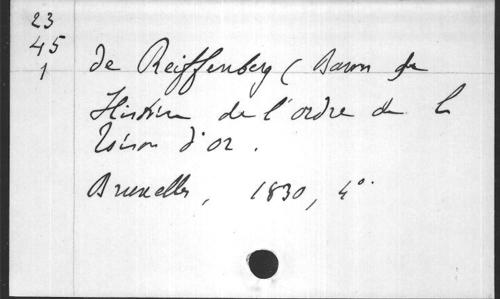 23
45
1
de Reiffenberg (Baron de
Histoire de l'ordre de la
Toison d'or.
Bruxelles, 1830, 4°.